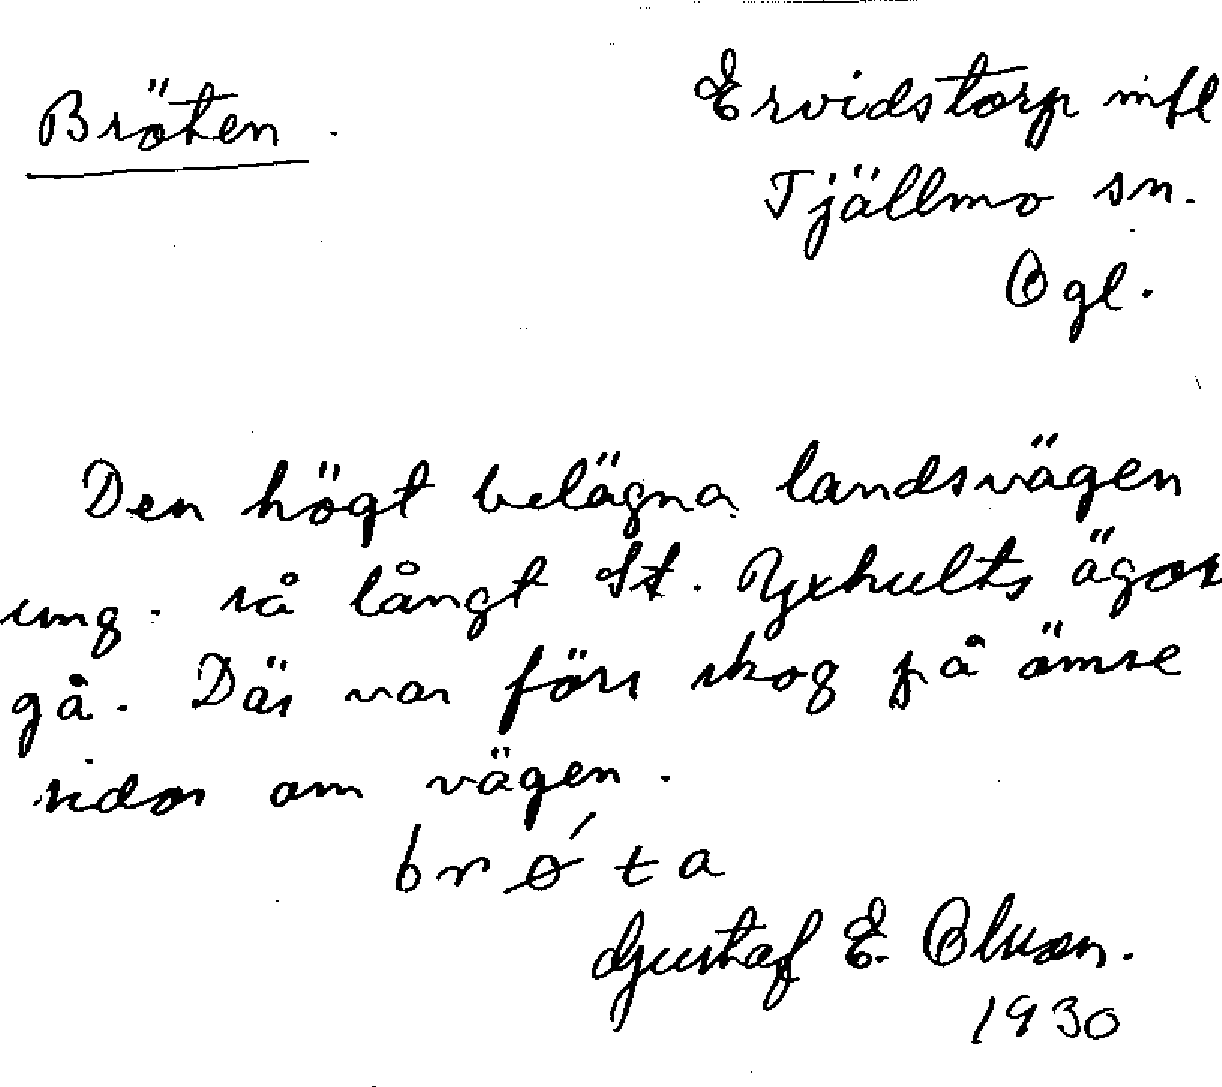 Bröten.
Ervidstorp mfl
Tjällmo sn.
Ögl.
Den högt belägna landsvägen
ung. så långt St. Yxhults ägor
gå. Där var förr skog på ömse
sidor om vägen.
brǿta
Gustaf E. Olsson.
1930